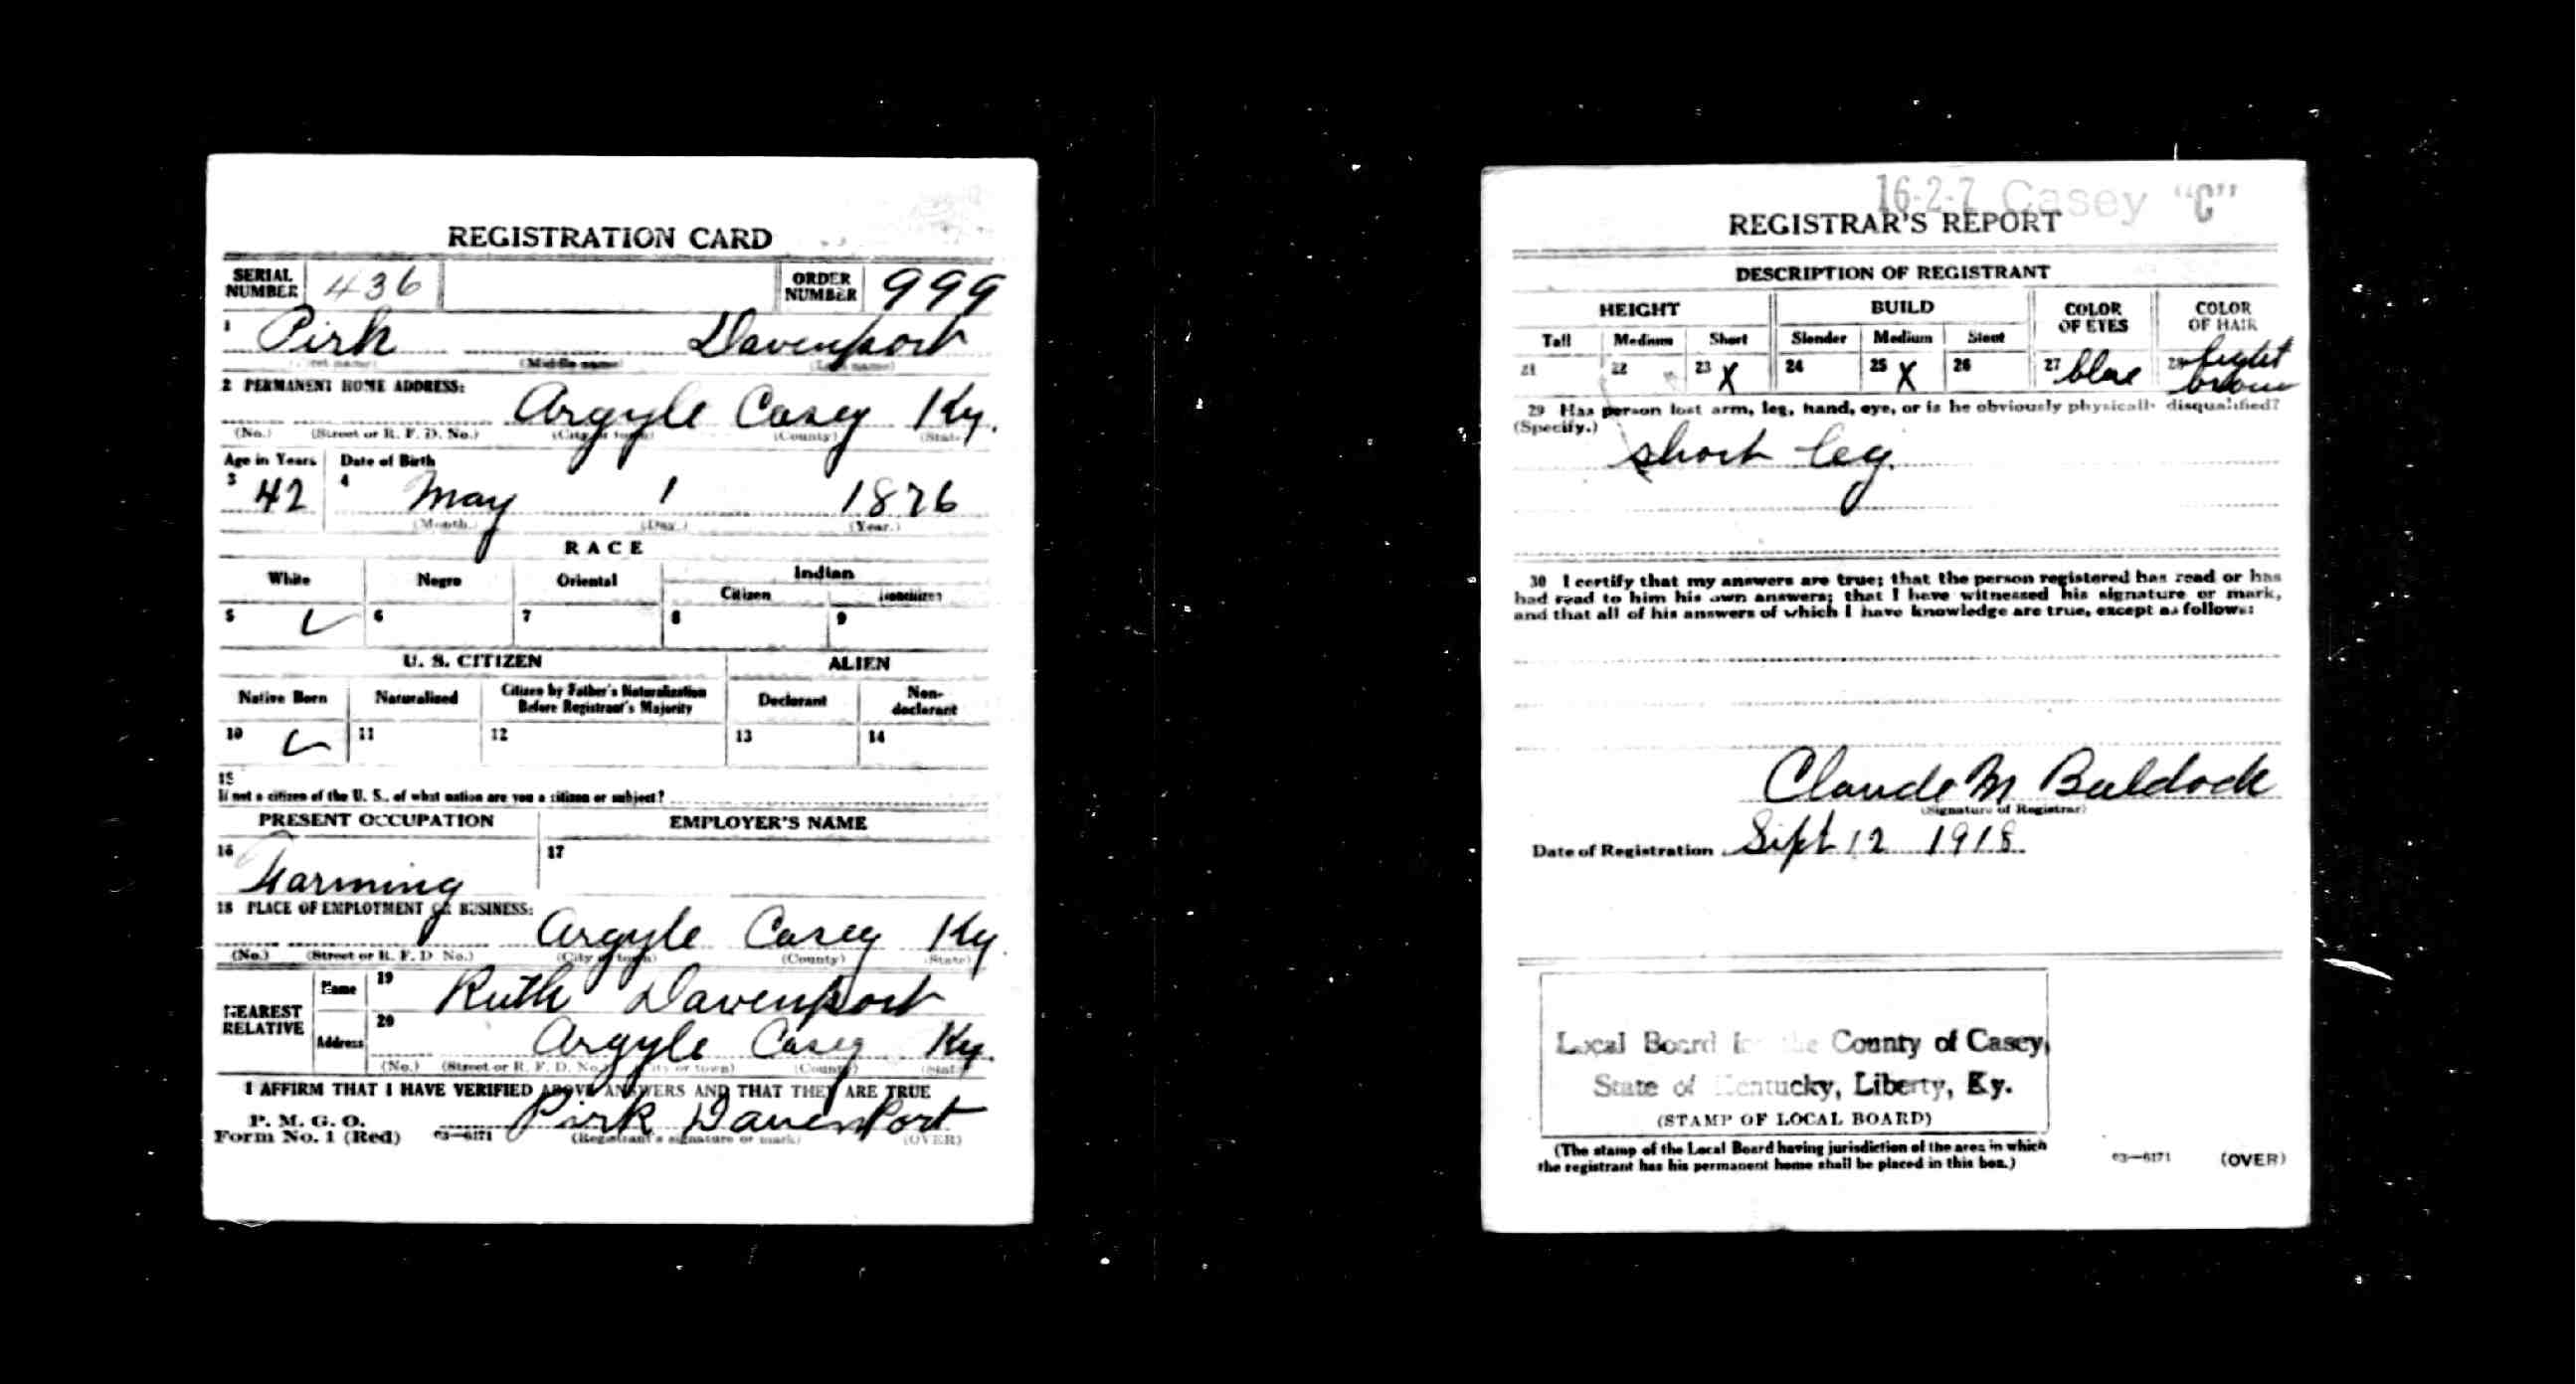 REGISTRATION CARD
SERIAL NUMBER 436 ORDER NUMBER 999
1 Pirk Davenport
(First name) (Middle name) (Last name)
2 PERMANENT HOME ADDRESS:
Argyle Casey Ky.
(No.) (Street or R. F. D. No.) (City or town) (County) (State)
Age in Years Date of Birth
3 42 4 May 1 1876
(Month.) (Day.) (Year.)
RACE
White Negro Oriental Indian
Citizen Noncitizen
5 6 7 8 9
U. S. CITIZEN ALIEN
Native Born Naturalized Citizen by Father's Naturalization Before Registrant's Majority Declarant Non-declarant
10 11 12 13 14
15
If not a citizen of the U. S., of what nation are you a citizen or subject?
PRESENT OCCUPATION EMPLOYER'S NAME
16 Farming 17
18 PLACE OF EMPLOYMENT OR BUSINESS:
Argyle Casey Ky
(No.) (Street or R. F. D. No.) (City or town) (County) (State)
NEAREST RELATIVE Name 19 Ruth Davenport
Address 20 Argyle Casey Ky.
(No.) (Street or R. F. D. No.) (City or town) (County) (State)
I AFFIRM THAT I HAVE VERIFIED ABOVE ANSWERS AND THAT THEY ARE TRUE
P. M. G. O.
Form No. 1 (Red) 03—6171 Pirk Davenport
(Registrant's signature or mark) (OVER)
16-2-7 Casey "C"
REGISTRAR'S REPORT
DESCRIPTION OF REGISTRANT
HEIGHT BUILD COLOR OF EYES COLOR OF HAIR
Tall Medium Short Slender Medium Stout
21 22 23 X 24 25 X 26 27 blue 28 light brown
29 Has person lost arm, leg, hand, eye, or is he obviously physically disqualified?
(Specify.)
short leg.
30 I certify that my answers are true; that the person registered has read or has
had read to him his own answers; that I have witnessed his signature or mark,
and that all of his answers of which I have knowledge are true, except as follows:
Claude M Baldock
(Signature of Registrar)
Date of Registration Sept 12 1918
Local Board for the County of Casey,
State of Kentucky, Liberty, Ky.
(STAMP OF LOCAL BOARD)
(The stamp of the Local Board having jurisdiction of the area in which
the registrant has his permanent home shall be placed in this box.)
03—6171 (OVER)